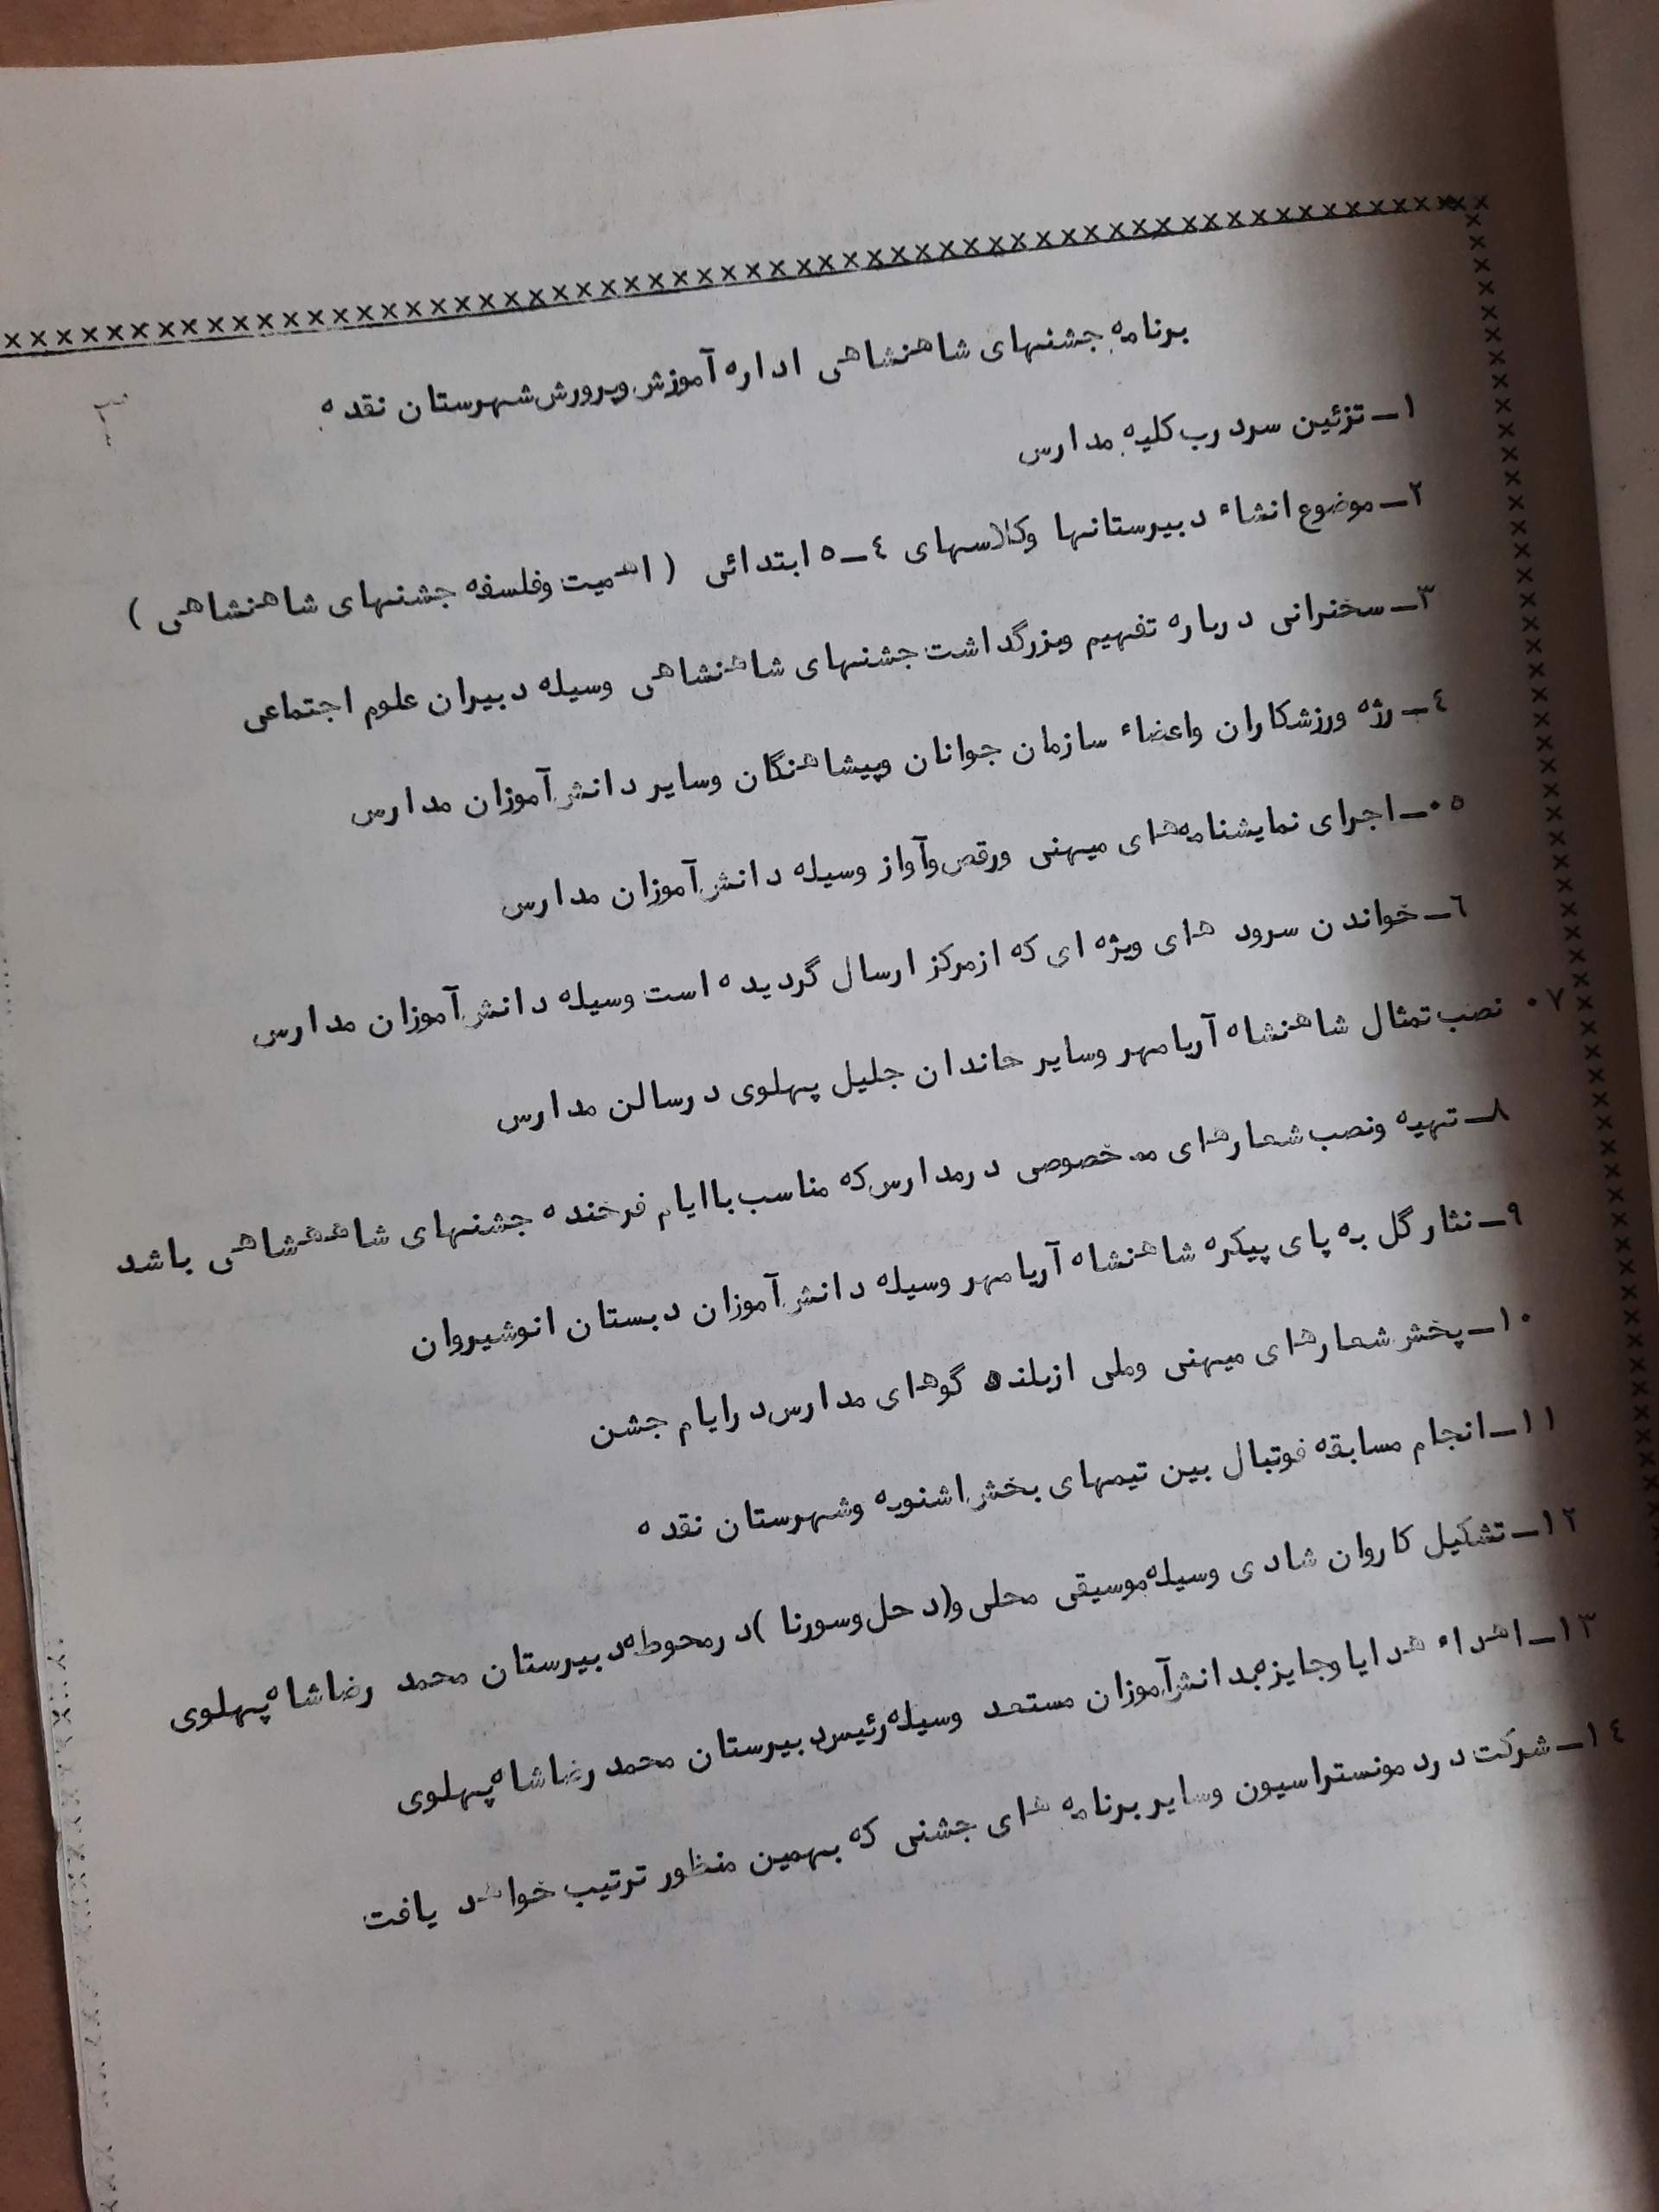 برنامه جشنهای شاهنشاهی اداره آموزش وپرورش شهرستان نقده
۳
۱ـ تزئین سردرب کلیه مدارس
۲ـ موضوع انشاء دبیرستانها وکلاسهای ٤ـ٥ ابتدائی ( اهمیت وفلسفه جشنهای شاهنشاهی )
۳ـ سخنرانی درباره تفهیم وبزرگداشت جشنهای شاهنشاهی وسیله دبیران علوم اجتماعی
٤ـ رژه ورزشکاران واعضاء سازمان جوانان وپیشاهنگان وسایر دانش آموزان مدارس
٥۰ـ اجرای نمایشنامه های میهنی ورقص وآواز وسیله دانش آموزان مدارس
٦ـ خواندن سرود های ویژه ای که ازمرکز ارسال گردیده است وسیله دانش آموزان مدارس
۷۰ نصب تمثال شاهنشاه آریامهر وسایر خاندان جلیل پهلوی درسالن مدارس
۸ـ تهیه ونصب شعارهای خصوصی درمدارس که مناسب باایام فرخنده جشنهای شاههشاهی باشد
۹ـ نثار گل به پای پیکره شاهنشاه آریامهر وسیله دانش آموزان دبستان انوشیروان
۱۰ـ پخش شعارهای میهنی وملی ازبلنده گوهای مدارس درایام جشن
۱۱ـ انجام مسابقه فوتبال بین تیمهای بخش اشنویه وشهرستان نقده
۱۲ـ تشکیل کاروان شادی وسیله موسیقی محلی و(دحل وسورنا )درمحوطه دبیرستان محمد رضاشاه پهلوی
۱۳ـ اهداء هدایا وجایزه بدانش آموزان مستعد وسیله رئیس دبیرستان محمد رضاشاه پهلوی
۱٤ـ شرکت دردمونستراسیون وسایر برنامه های جشنی که بهمین منظور ترتیب خواهد یافت